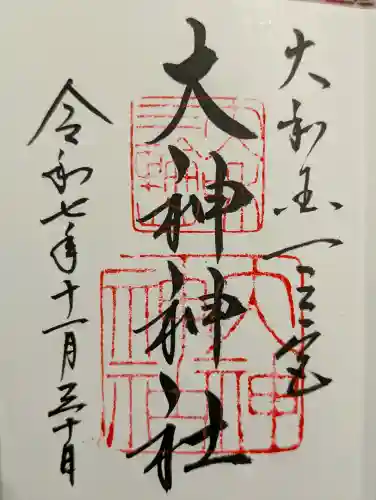 大和国一之宮
大神神社
令和七年十一月三十日